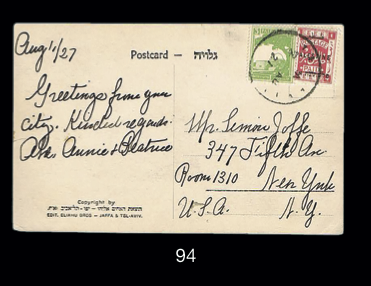 Aug 1/27
Postcard — גלויה
Greetings from your
city. Kindest regards.
Annie & Beatrice
Mr. Simon Joffe
347 Fifth Ave
Room 1310 New York
U.S.A. N.Y.
Copyright by
EDIT. ELIAHU BROS — JAFFA & TEL-AVIV.
94